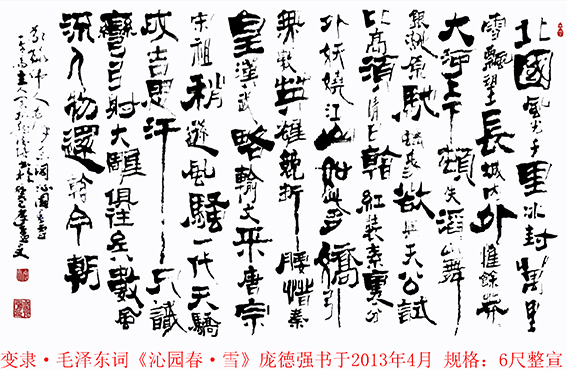 北國風光千里冰封萬里
雪飄望長城内外惟餘莽
大河上下頓失滔山舞
銀蛇原馳蠟象欲與天公試
比高須晴日看紅裝素裹分
外妖嬈江山如此多嬌引
無數英雄競折腰惜秦
皇漢武略輸文采唐宗
宋祖稍遜風騷一代天驕
成吉思汗只識
彎弓射大雕俱往矣數風
流人物還看今朝
变隶·毛泽东词《沁园春·雪》庞德强书于2013年4月 规格：6尺整宣